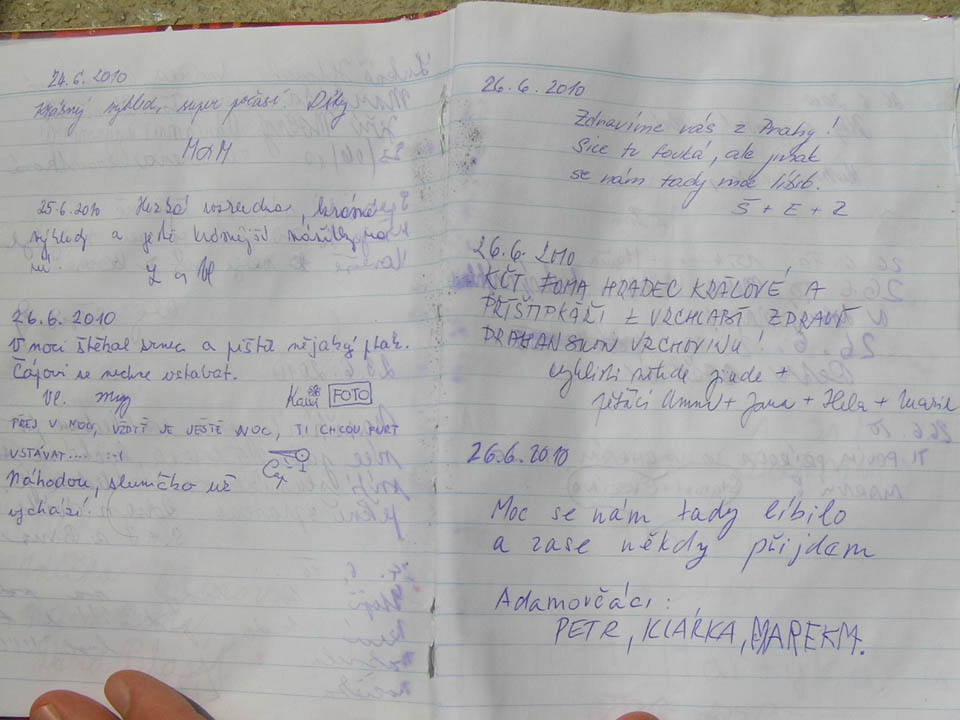 24.6.2010
Krásný výhled, super počasí. Díky
M+M
25.6.2010 Hezká rozhledna, krásné
výhledy a ještě krásnější
26.6.2010
V noci štěkal srnec a pištěl nějaký pták.
Čápovi se nechce vstávat.
FOTO
PŘEJ V NOCI, VŽDIŤ JE JEŠTĚ NOC, TI CHCOU FURT
VSTÁVAT.... :-(
Čáp
Náhodou, sluníčko už
vychází.
26.6.2010
Zdravíme vás z Prahy!
Sice tu fouká, ale jinak
se nám tady moc líbí.
Š + E + Z
26.6.2010
KČT FOMA HRADEC KRÁLOVÉ A
PŘÍŠTIPKÁŘI Z VRCHLABÍ ZDRAVÍ
DRAHANSKOU VRCHOVINU!
+
pěšáci + Jana + Hela + Marie
26.6.2010
Moc se nám tady líbilo
a zase někdy přijdem
Adamovčáci:
PETR, KLÁRKA, MAREK M.